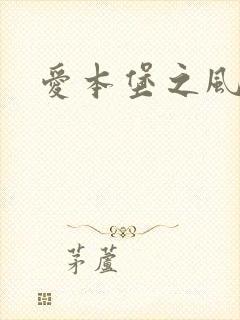 愛本堡之風
茅蘆